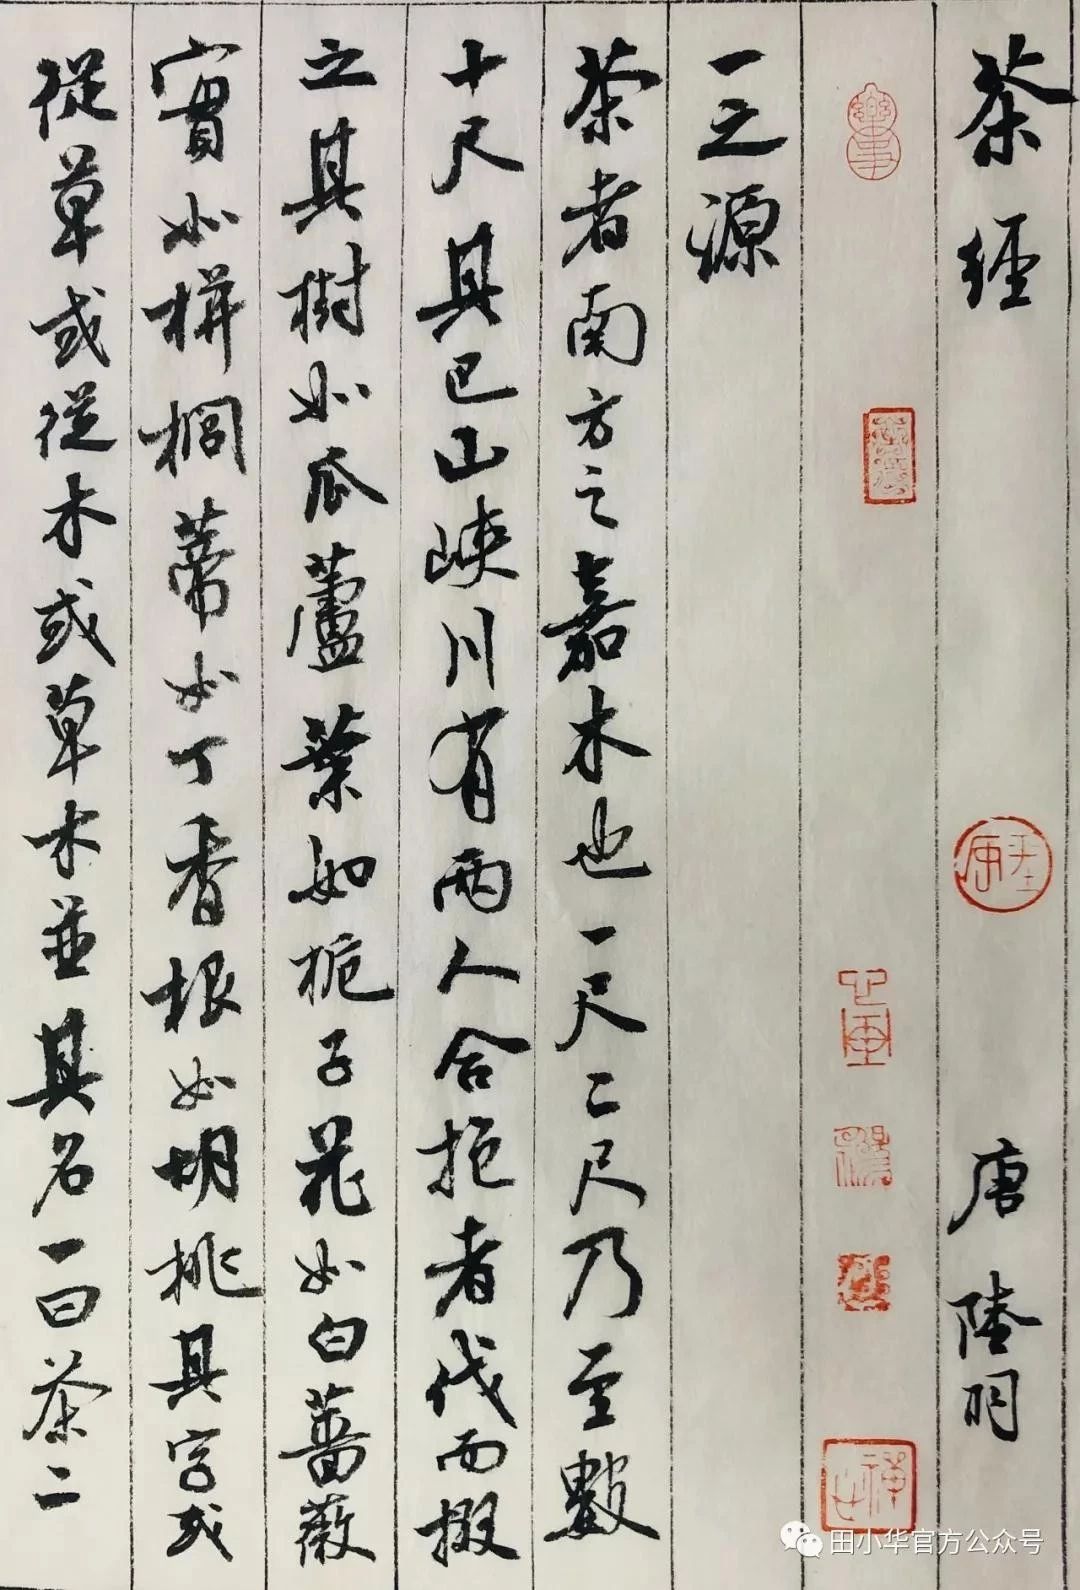 茶經 唐 陸羽
一之源
茶者南方之嘉木也一尺二尺乃至數
十尺其巴山峽川有兩人合抱者伐而掇
之其樹如瓜蘆葉如梔子花如白薔薇
實如栟櫚蒂如丁香根如胡桃其字或
從草或從木或草木並其名一曰茶二
田小华官方公众号